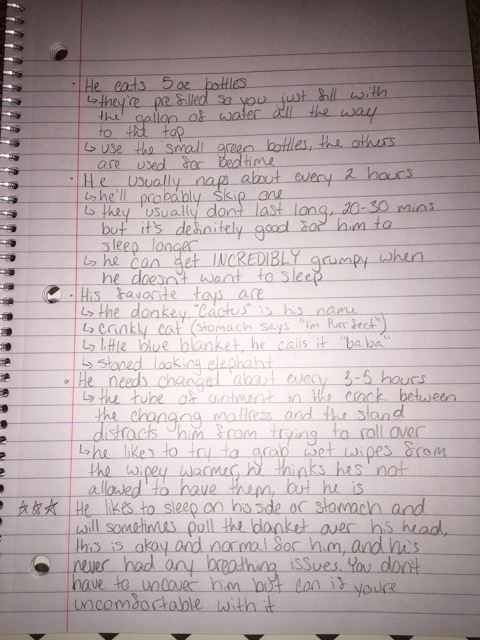 · He eats 5 oz bottles
↳ they're pre filled so you just fill with
the gallon of water all the way
to the top
↳ use the small green bottles, the others
are used for bedtime
· He usually naps about every 2 hours
↳ he'll probably skip one
↳ they usually dont last long, 20-30 mins
but it's definitely good for him to
sleep longer
↳ he can get INCREDIBLY grumpy when
he doesn't want to sleep
· His favorite toys are
↳ the donkey "Cactus" is his name
↳ crinkly cat (stomach says "Im Purrfect")
↳ little blue blanket, he calls it "baba"
↳ stoned looking elephant
· He needs changed about every 3-5 hours
↳ the tube of ointment in the crack between
the changing mattress and the stand
distracts him from trying to roll over
↳ he likes to try to grab wet wipes from
the wipey warmer, he thinks hes not
allowed to have them, but he is
☆☆☆ He likes to sleep on his side or stomach and
will sometimes pull the blanket over his head,
this is okay and normal for him, and he's
never had any breathing issues. You don't
have to uncover him but can if you're
uncomfortable with it